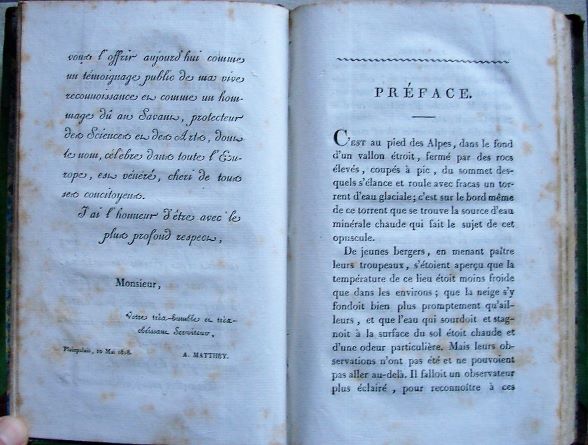 vous l'offrir aujourd'hui comme
un témoignage public de ma vive
reconnoissance et comme un hom-
mage dû au Savant, protecteur
des Sciences et des Arts, dont
le nom, célebre dans toute l'Eu-
rope, est vénéré, cheri de tous
ses concitoyens.
J'ai l'honneur d'être avec le
plus profond respect,
Monsieur,
Votre très-humble et très-
obéissant Serviteur,
Plainpalais, 10 Mai 1818.
A. MATTHEY.
PRÉFACE.
C'EST au pied des Alpes, dans le fond
d'un vallon étroit, fermé par des rocs
élevés, coupés à pic, du sommet des-
quels s'élance et roule avec fracas un tor-
rent d'eau glaciale; c'est sur le bord même
de ce torrent que se trouve la source d'eau
minérale chaude qui fait le sujet de cet
opuscule.
De jeunes bergers, en menant paître
leurs troupeaux, s'étoient aperçu que la
température de ce lieu étoit moins froide
que dans les environs; que la neige s'y
fondoit bien plus promptement qu'ail-
leurs, et que l'eau qui sourdoit et stagn-
oit à la surface du sol étoit chaude et
d'une odeur particulière. Mais leurs ob-
servations n'ont pas été et ne pouvoient
pas aller au-delà. Il falloit un observateur
plus éclairé, pour reconnoître à ces